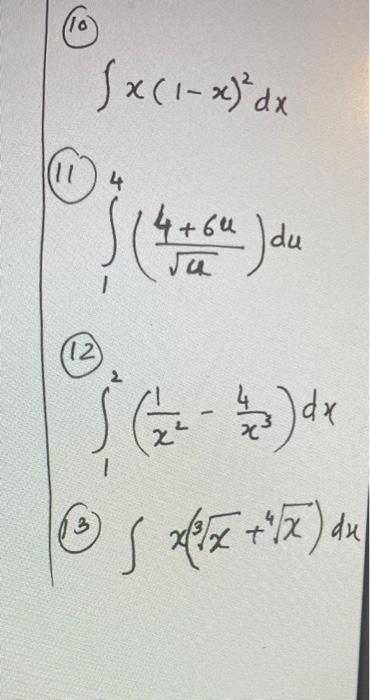 (10)
∫ x(1-x)² dx
(11)
∫₁⁴ ((4+6u)/√u) du
(12)
∫₁² (1/x² - 4/x³) dx
(13) ∫ x(³√x + ⁴√x) dx